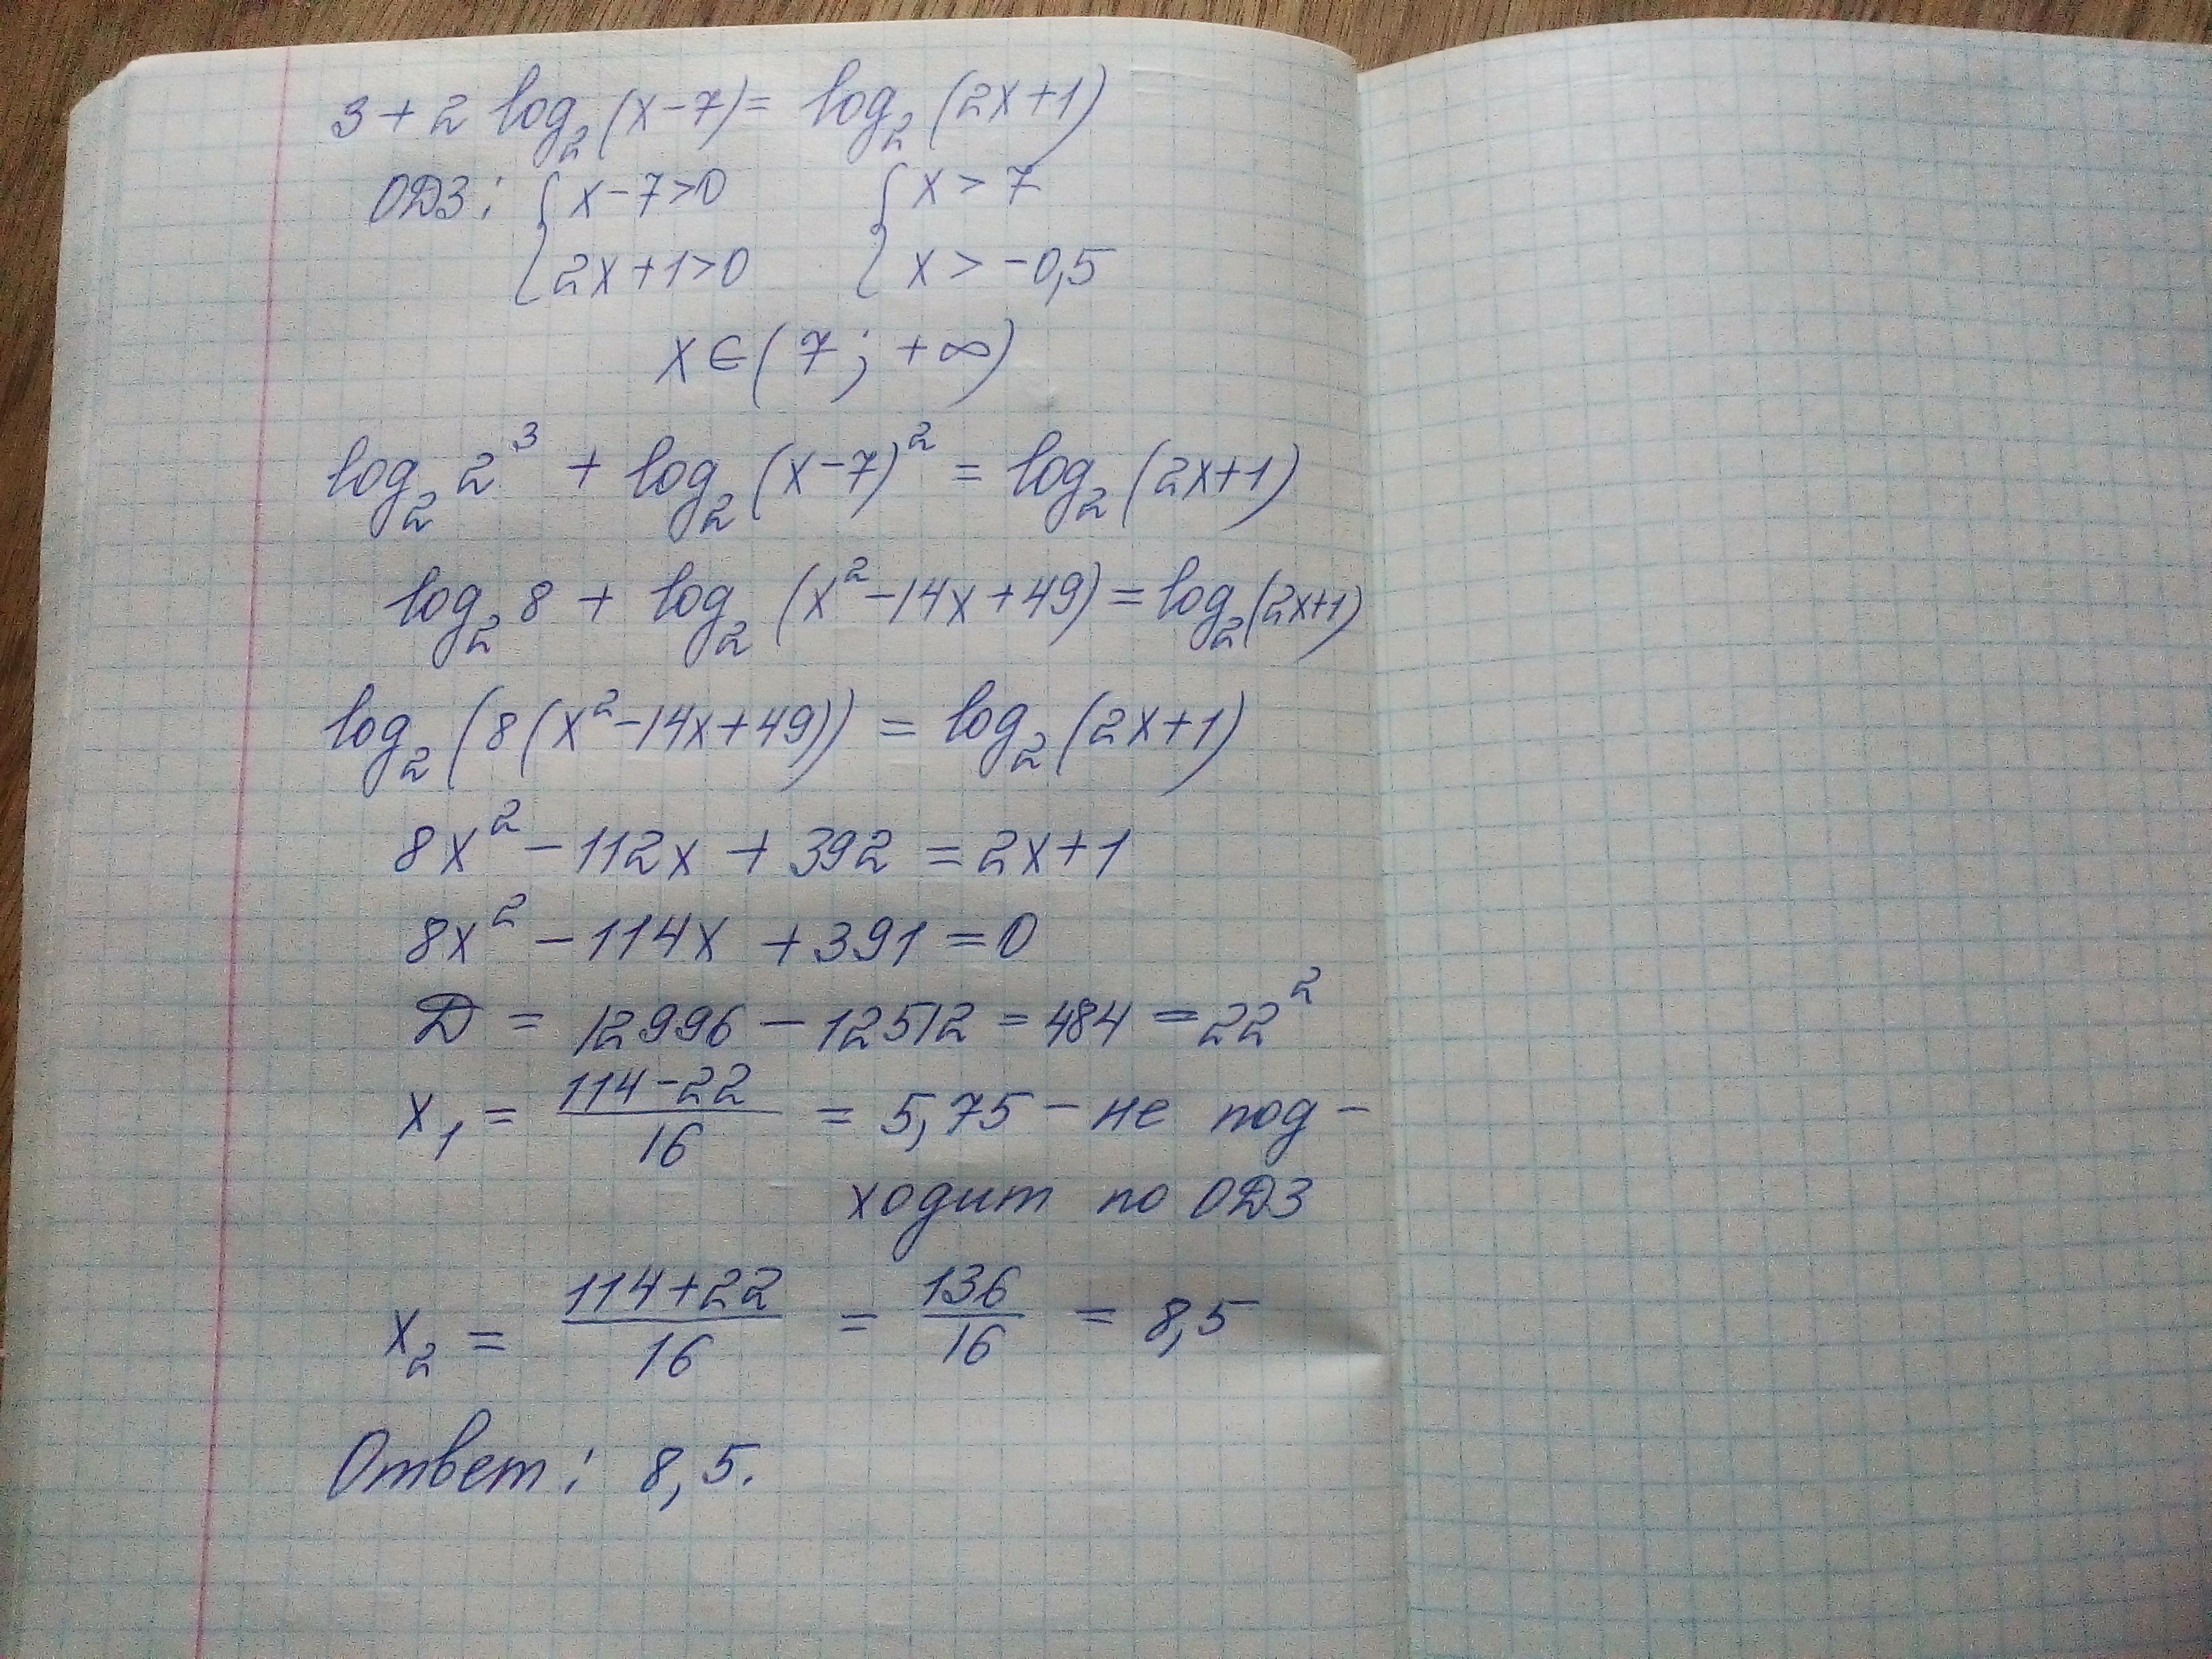 3 + 2 log₂(x-7) = log₂(2x+1)
ОДЗ: { x-7>0 { x > 7
{ 2x+1>0 { x > -0,5
x ∈ (7; +∞)
log₂ 2³ + log₂ (x-7)² = log₂ (2x+1)
log₂ 8 + log₂ (x²-14x+49) = log₂(2x+1)
log₂ (8(x²-14x+49)) = log₂ (2x+1)
8x² - 112x + 392 = 2x+1
8x² - 114x + 391 = 0
D = 12996 - 12512 = 484 = 22²
x₁ = (114-22)/16 = 5,75 - не под-
ходит по ОДЗ
x₂ = (114+22)/16 = 136/16 = 8,5
Ответ: 8,5.